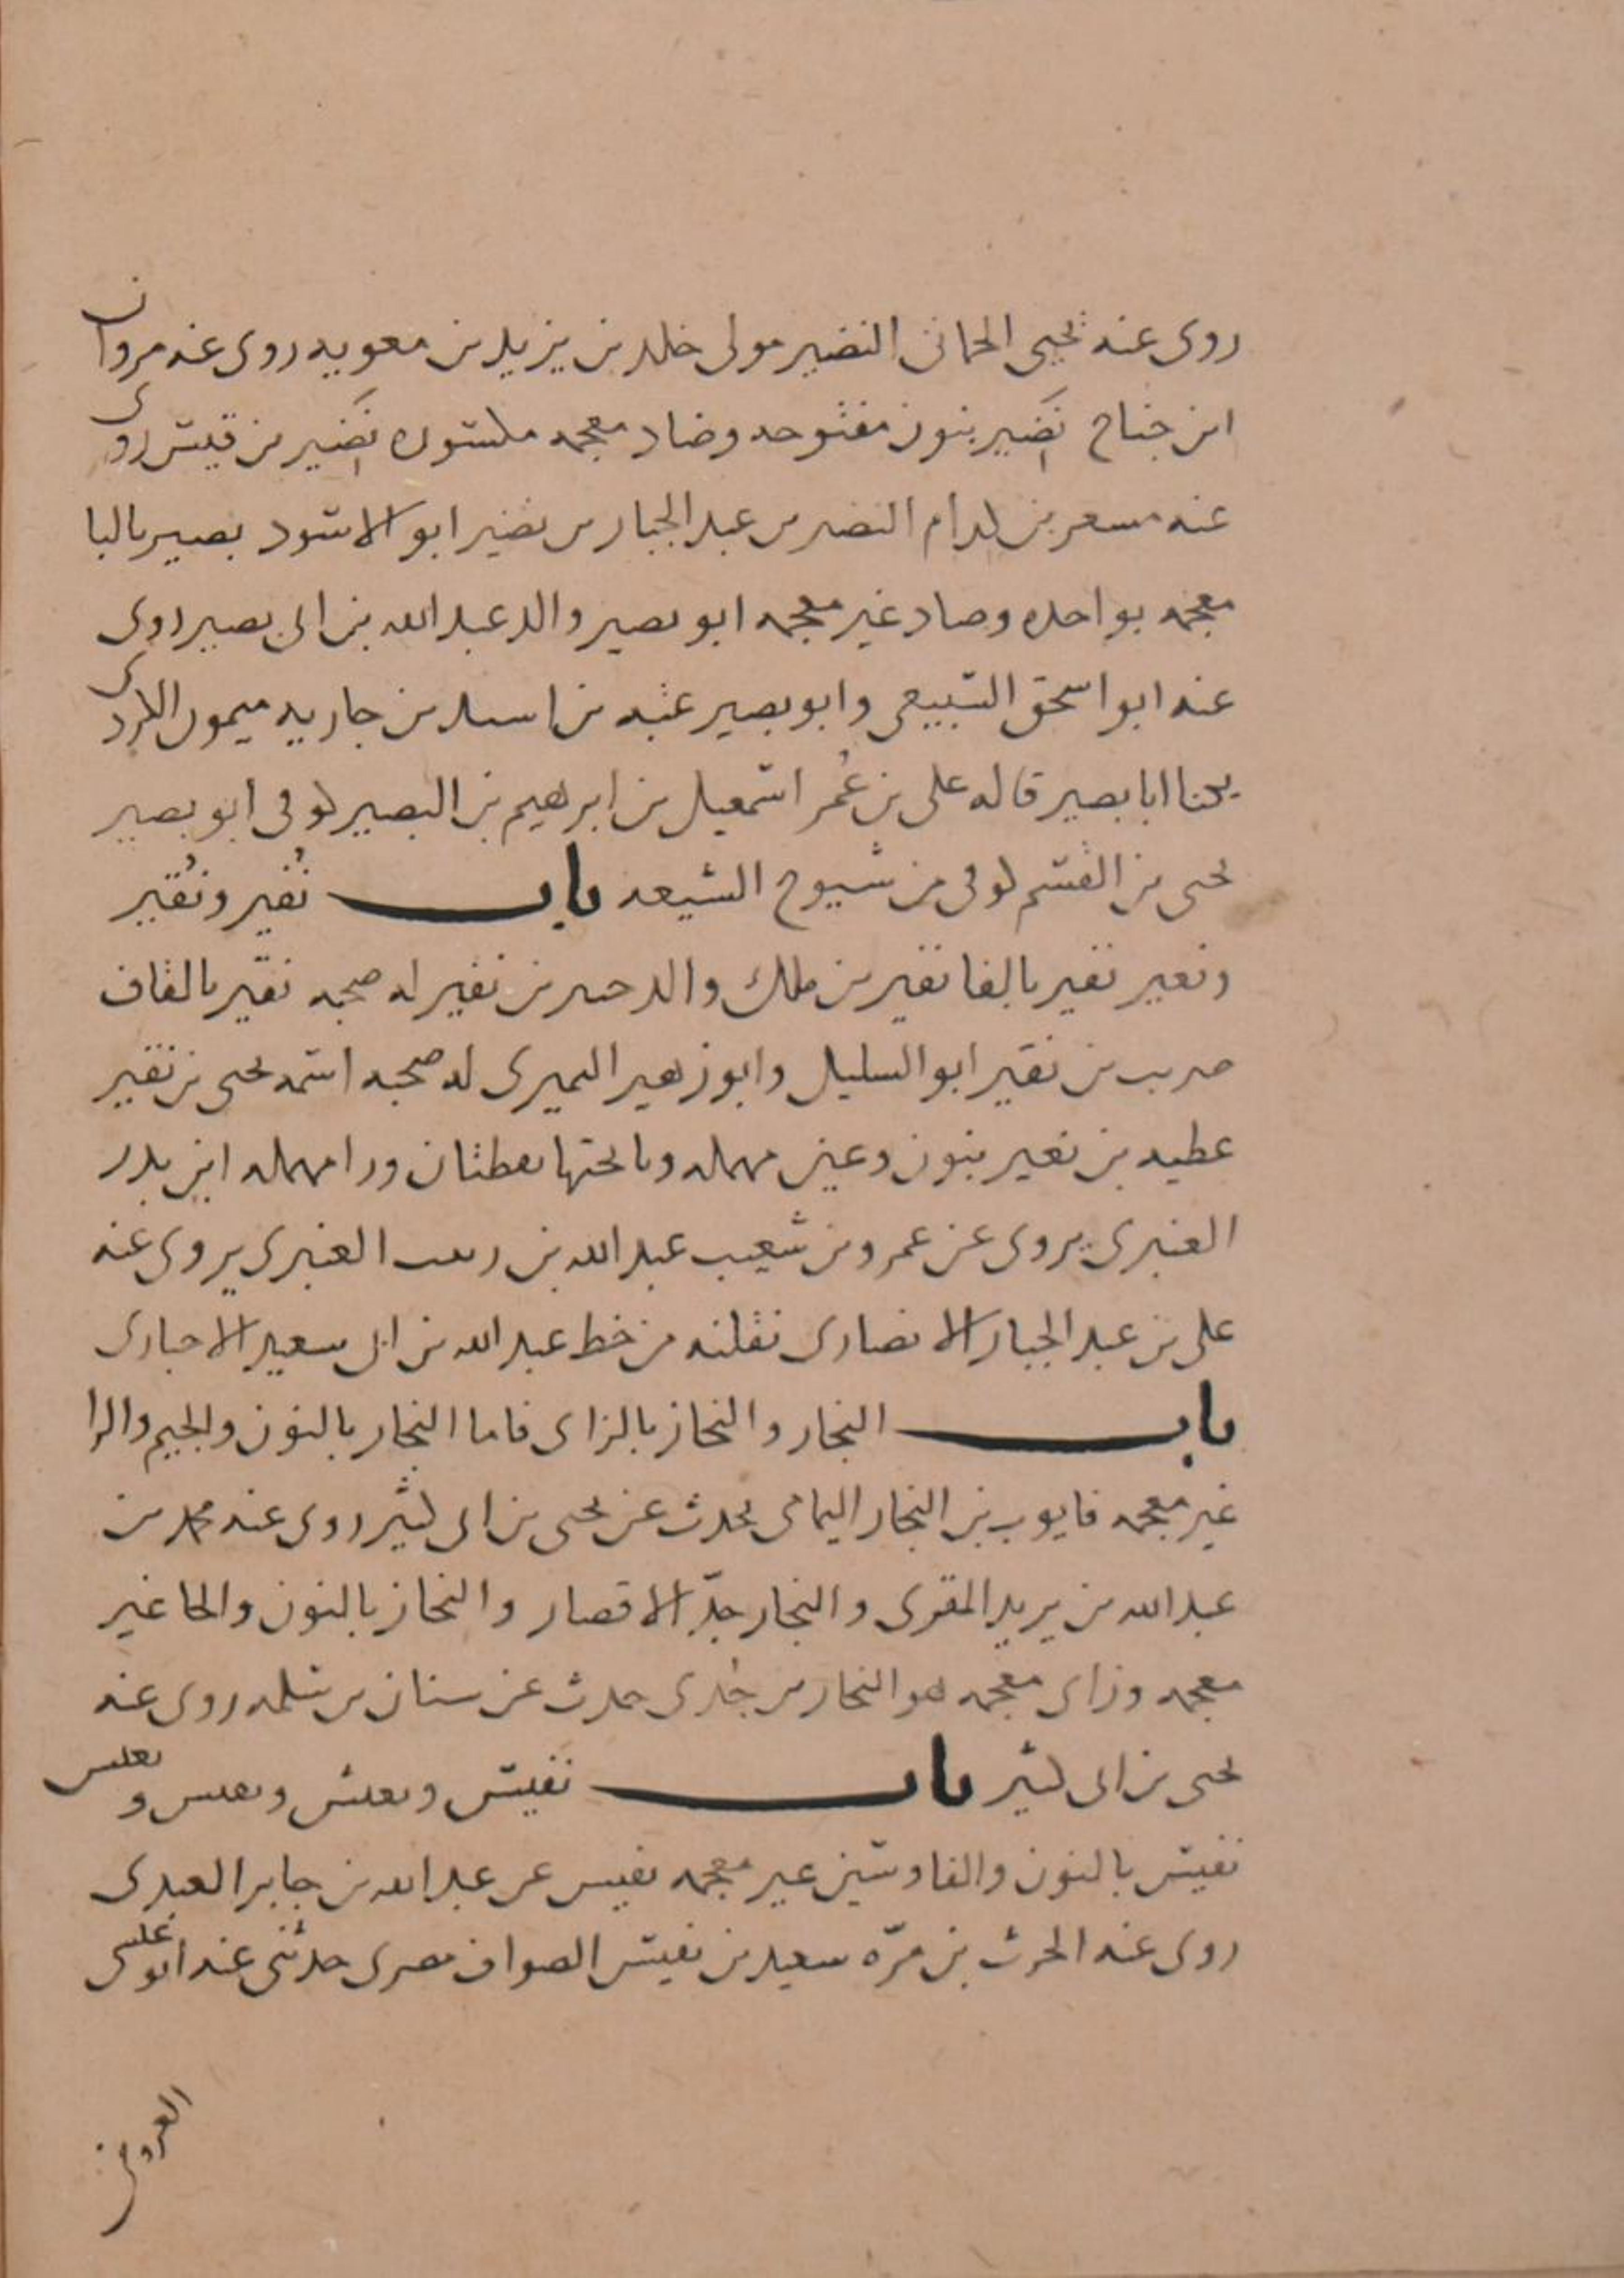 روى عنه يحيى الحمانى النضير مولى خلد بن يزيد بن معويه روى عنه مروان
ابن جناح نَضِير بنون مفتوحه وضاد معجمه مكسوره نَضِير بن قيس روى
عنه مسعر بن كدام النضر بن عبد الجبار بن نضير ابو الاسود بصير بالبا
معجمه بواحده وصاد غير معجمه ابو بصير والد عبد الله بن ابى بصير روى
عنه ابو اسحق السبيعى وابو بصير عتبه بن اسيد بن جاريه ميمون الكردى
يكنا ابا بصير قاله على بن عُمر اسمعيل بن ابرهيم بن البصير كوفى ابو بصير
يحيى بن القسم كوفى من شيوخ الشيعه باب نُفير ونُقير
ونعير نفير بالفا نفير بن ملك والد جبير بن نفير له صحبه نقير بالقاف
ضريب بن نقير ابو السليل وابو زهير النميرى له صحبه اسمه يحيى بن نقير
عطيه بن نعير بنون وعين مهمله ويا تحتها نقطتان ورا مهمله ابن بدر
العنبرى يروى عن عمرو بن شعيب عبد الله بن العنبرى يروى عنه
على بن عبد الجبار الانصارى نقلته من خط عبد الله بن ابى سعيد الاخبارى
باب النجار والنحاز بالزاى فاما النجار بالنون والجيم والرا
غير معجمه فايوب بن النجار اليمامى يحدث عن يحيى بن ابى كثير روى عنه محمد بن
عبد الله بن يزيد المقرى والنجار جدّ الانصار والنحاز بالنون والحا غير
معجمه وزاى معجمه هو النحاز بن جُدى حدث عن سنان بن سلمه روى عنه
يحيى بن ابى كثير باب نفيس و و و
نفيس بالنون والفا وسين غير معجمه نفيس عن عبد الله بن جابر العبدى
روى عنه الحرث بن مرّه سعيد بن نفيس الصواف مصرى حدثنى عنه ابو على